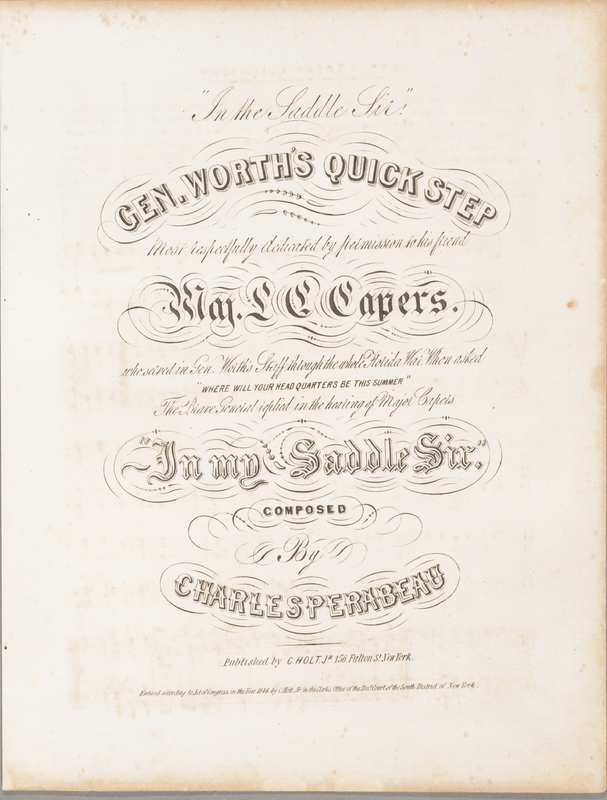 "In the Saddle Sir."
GEN. WORTH'S QUICK STEP
Most respectfully dedicated by permission to his friend
Maj. L C Capers.
who served in Gen. Worth's Staff through the whole Florida War. When asked
"WHERE WILL YOUR HEAD QUARTERS BE THIS SUMMER"
The Brave General replied in the hearing of Major Capers
"In my Saddle Sir."
COMPOSED
By
CHARLES PERABEAU
Published by C. HOLT. Jr 156. Fulton St. New York.
Entered according to Act of Congress in the Year 1846 by C. Holt, Jr in the Clerks Office of the Dist. Court of the South. District of New York.